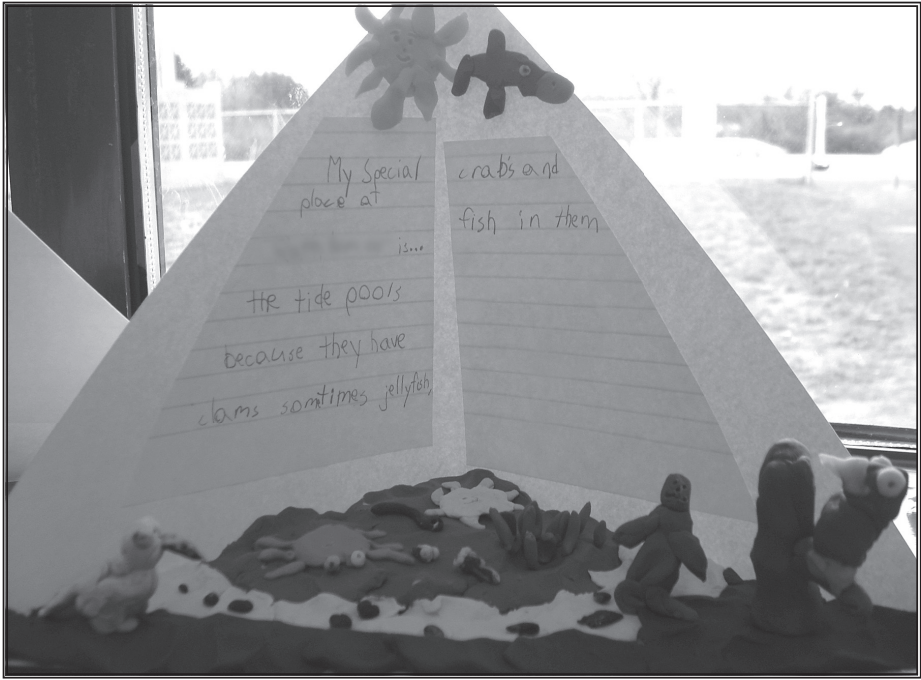 My Special
place at
is...
the tide pools
because they have
clams somtimes jellyfish,
crab's and
fish in them